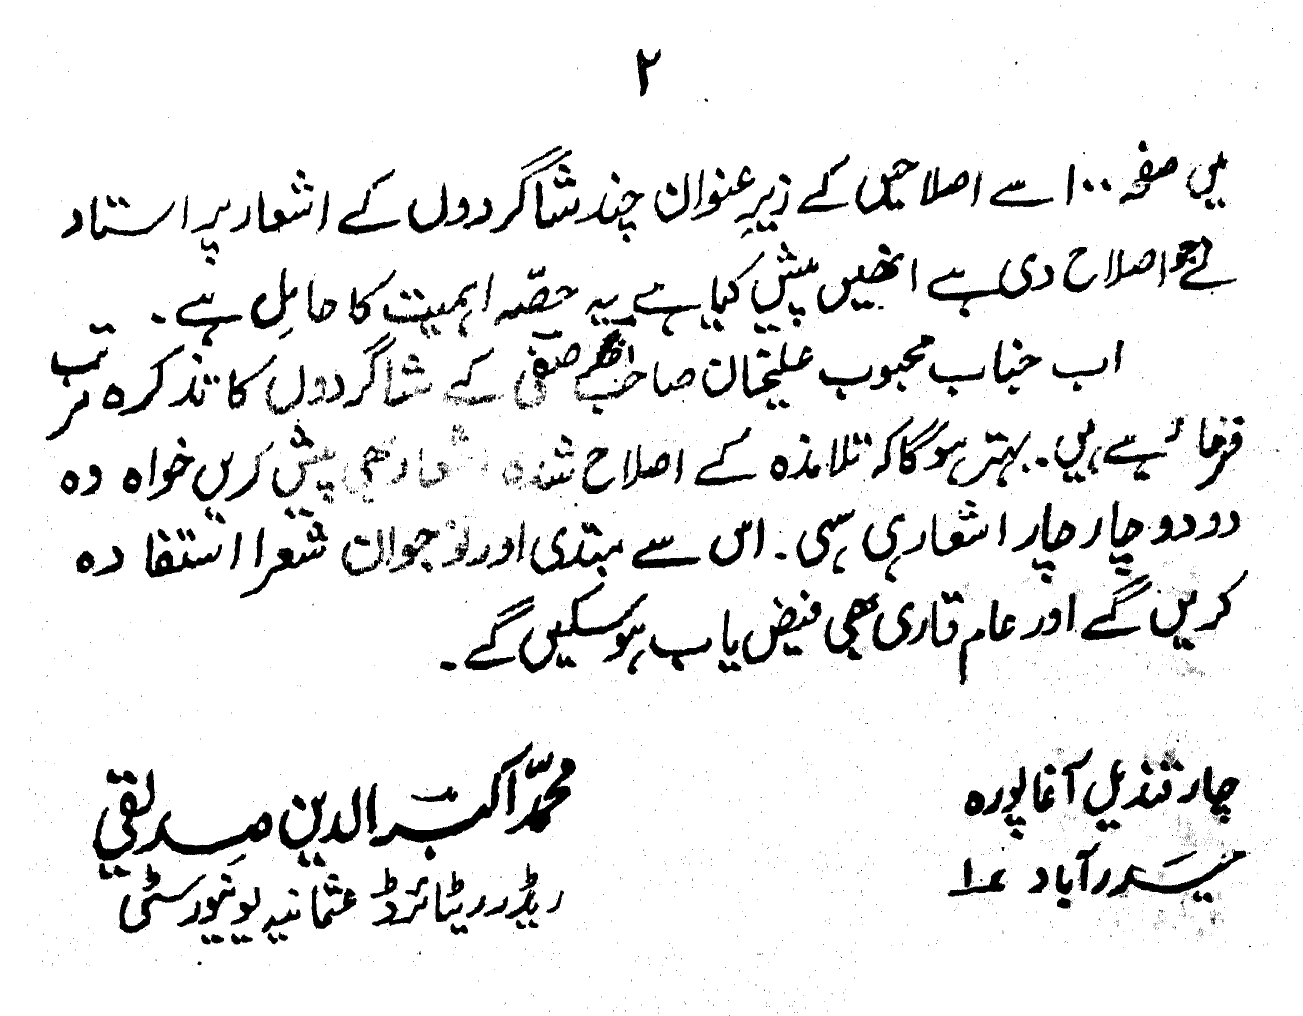 ۲
میں صفحہ ۱۰۰ سے اصلاحیں کے زیرِ عنوان چند شاگردوں کے اشعار پر استاد
نے جو اصلاح دی ہے انھیں پیش کیا ہے یہ حصّہ اہمیت کا حامِل ہے۔
اب جناب محبوب علیخان صاحب اخگر صفی کے شاگردوں کا تذکرہ مرتب
فرما رہے ہیں۔ بہتر ہوگا کہ تلامذہ کے اصلاح شدہ اشعار بھی پیش کریں خواہ وہ
دو دو چار چار اشعار ہی سہی۔ اس سے مبتدی اور نوجوان شعرا استفادہ
کریں گے اور عام قاری بھی فیض یاب ہو سکیں گے۔
چار قندیل آغا پورہ
حیدرآباد ۱
محمّد اکبر الدین صدیقی
ریڈر ریٹائرڈ عثمانیہ یونیورسٹی